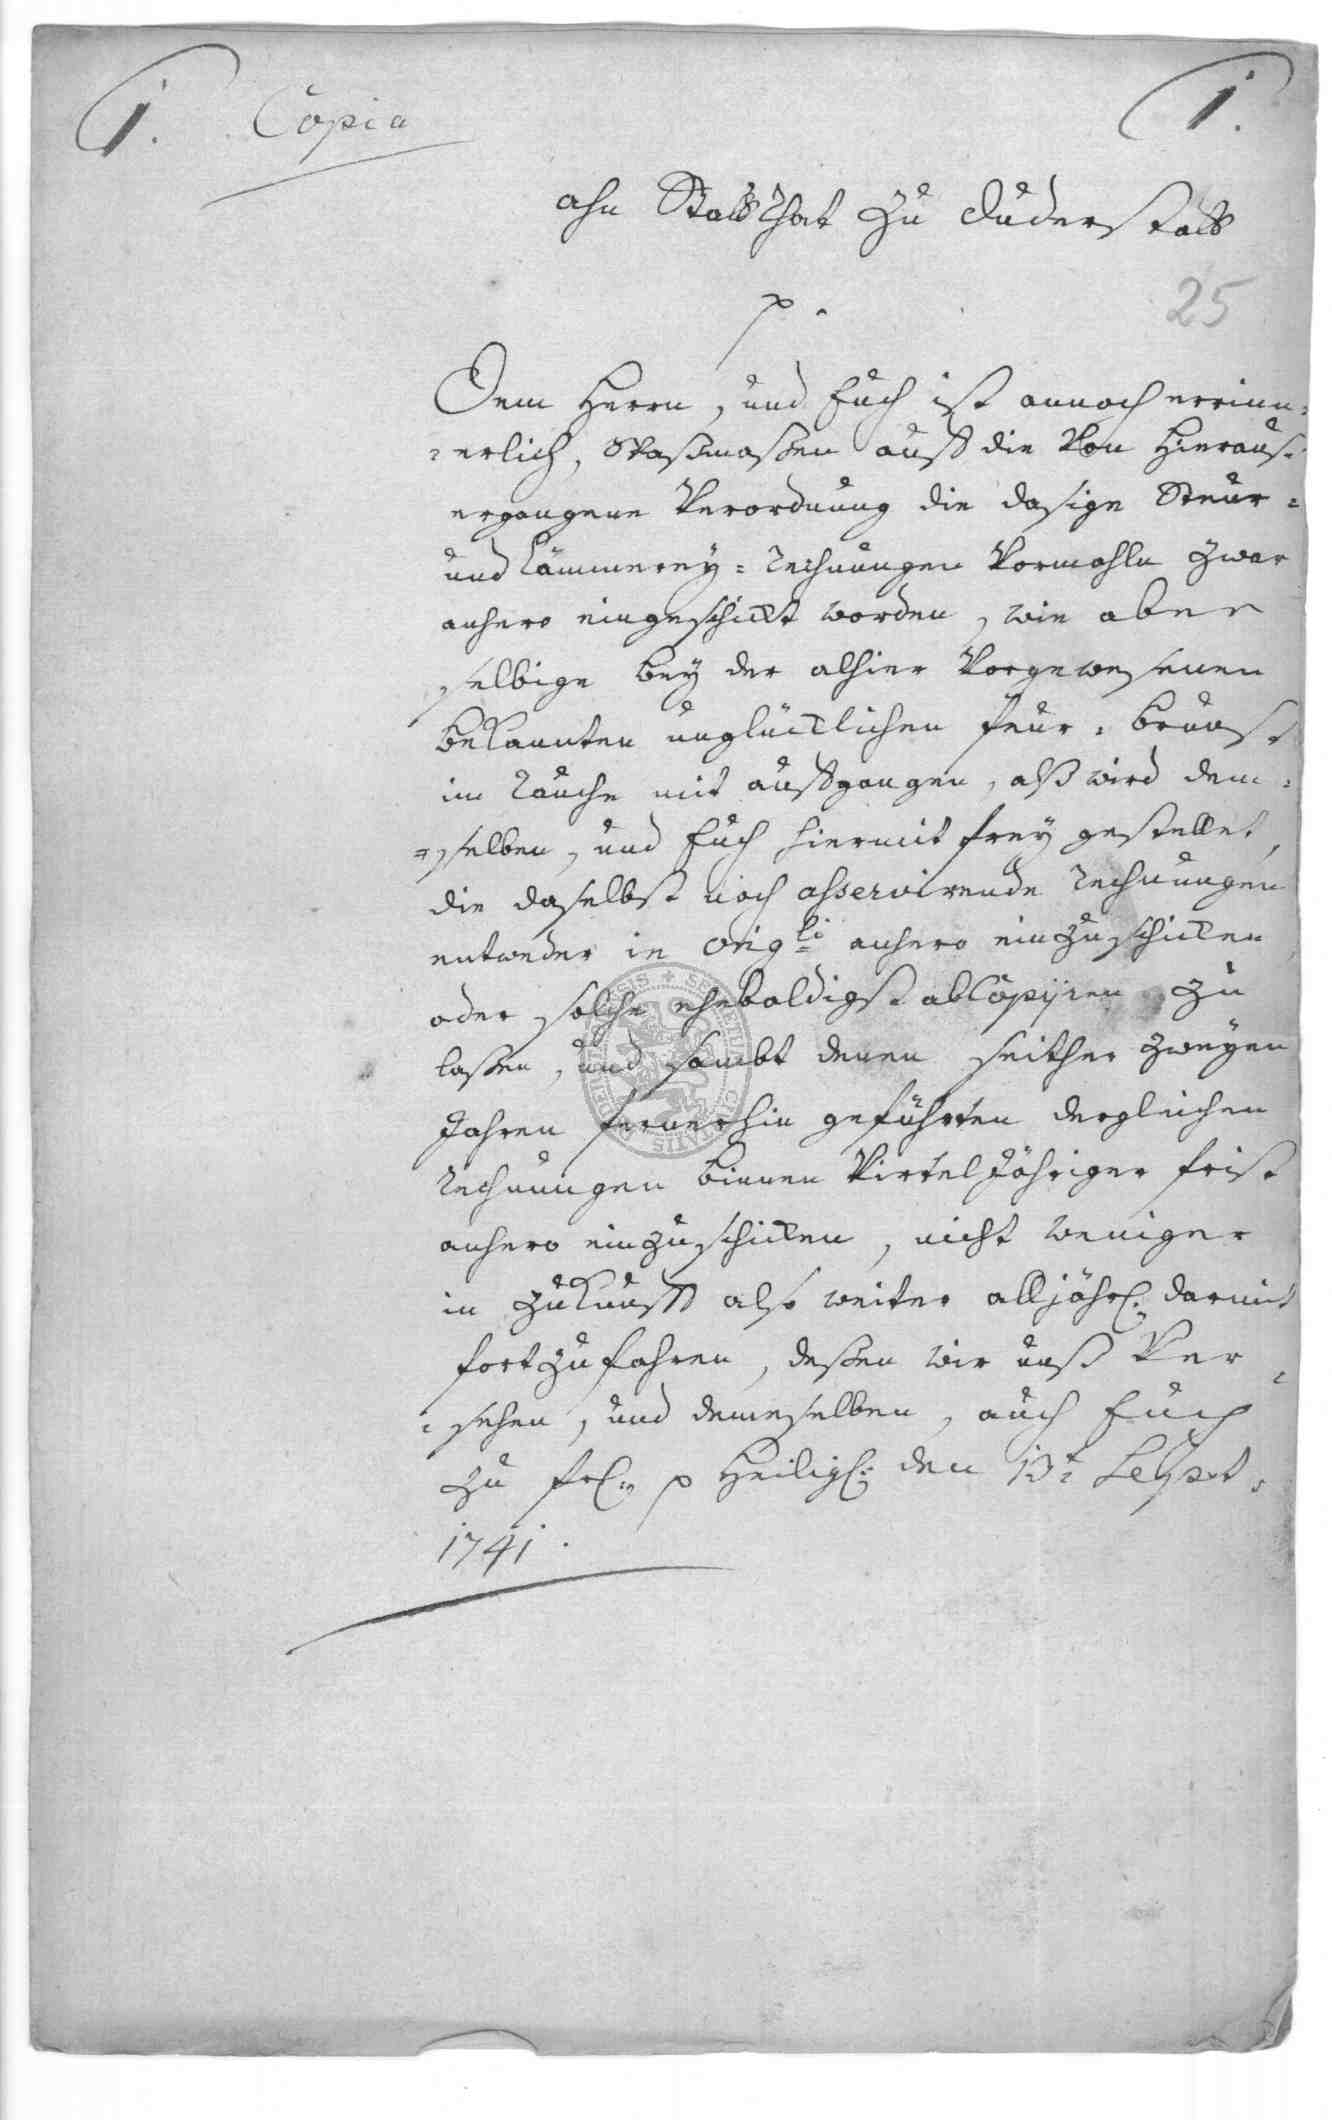 1. Copia 1.
ahn Stattrhat zu Duderstatt
p.
25
Dem Herrn, und Euch ist annoch errinn-
-erlich, waßmaßen auff die von hierauß
ergangene Verordnung die dasige Steur-
und Cämmerey-Rechnungen vormahln zwar
anhero eingeschickt worden, wie aber
selbige bey der alhier vorgewesenen
bekannten unglücklichen feur-brunst
im Rauche mit auffgangen, alß wird dem-
-selben, und Euch hiermit frey gestellet,
die daselbst noch asservirende Rechnungen
entweder in orig:li anhero einzuschicken
oder solche ehebaldigst abCopijren zu
laßen, und sambt denen seither zweyen
Jahren fernerhin geführten dergleichen
Rechnungen binnen virteljähriger frist
anhero einzuschicken, nicht weniger
in Zukunfft also weiter alljährl. darmit
fortzufahren, deßen wir unß ver-
-sehen, und demeselben, auch Euch
zu frl. p Heiligst. den 13t Sept.
1741.